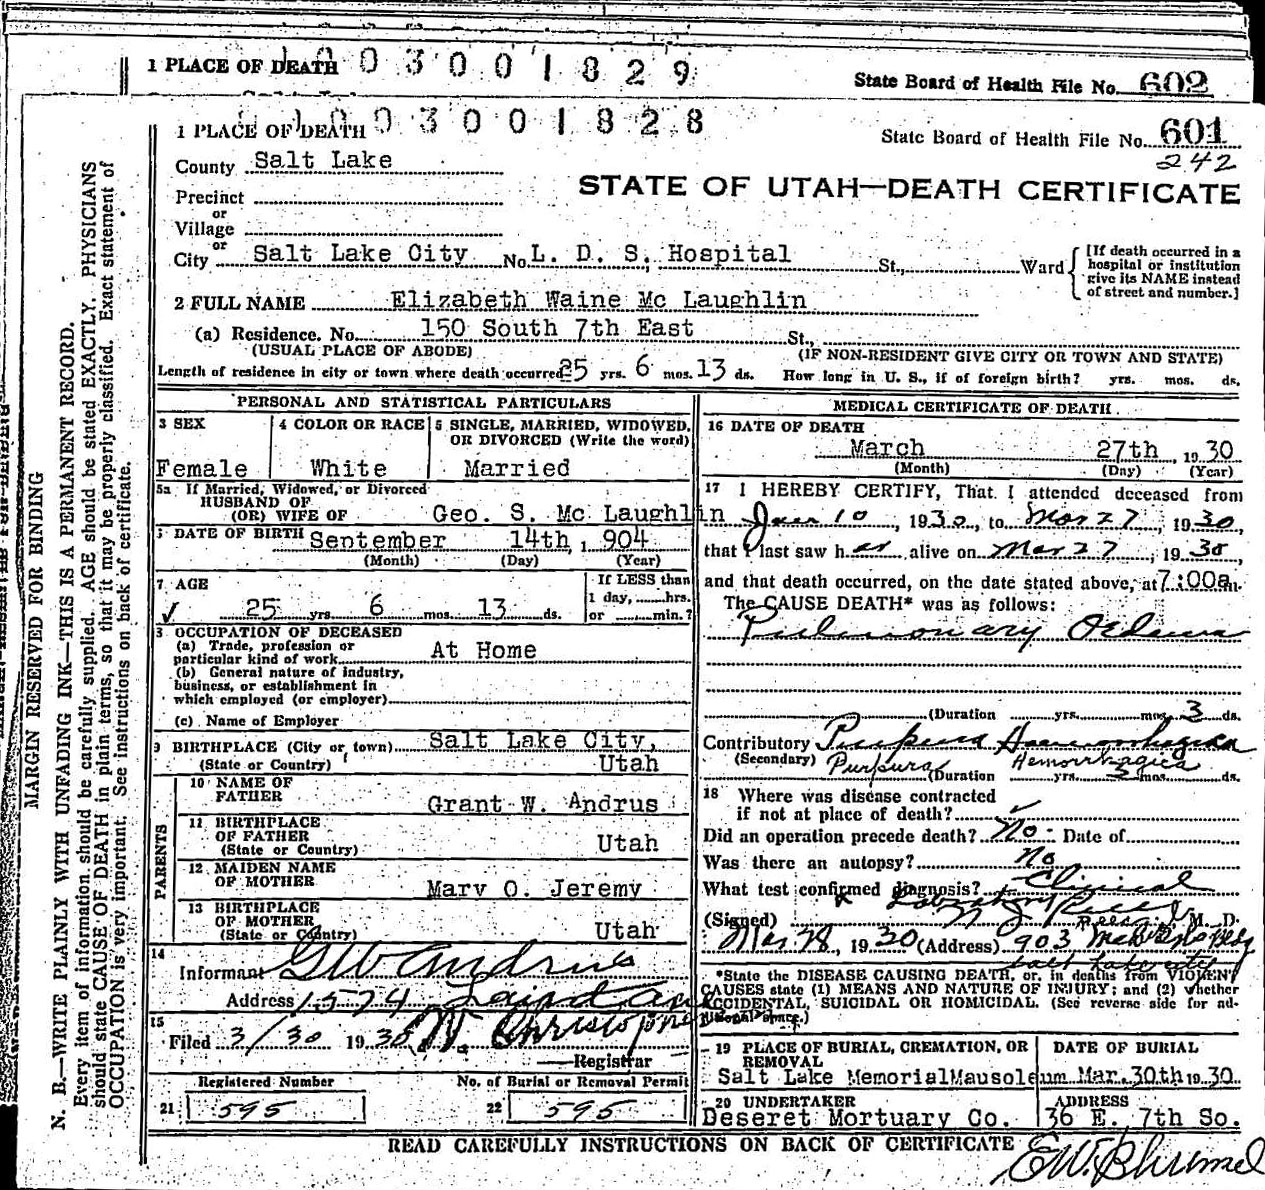 1 PLACE OF DEATH 1003001829
State Board of Health File No. 602
1 PLACE OF DEATH 1003001828
State Board of Health File No. 601
242
County Salt Lake
STATE OF UTAH—DEATH CERTIFICATE
Precinct
or
Village
or
City Salt Lake City No. L. D. S. Hospital St., Ward
[If death occurred in a
hospital or institution
give its NAME instead
of street and number.]
2 FULL NAME Elizabeth Waine Mc Laughlin
(a) Residence. No. 150 South 7th East St.,
(USUAL PLACE OF ABODE) (IF NON-RESIDENT GIVE CITY OR TOWN AND STATE)
Length of residence in city or town where death occurred 25 yrs. 6 mos. 13 ds. How long in U. S., if of foreign birth? yrs. mos. ds.
PERSONAL AND STATISTICAL PARTICULARS
3 SEX
Female
4 COLOR OR RACE
White
5 SINGLE, MARRIED, WIDOWED,
OR DIVORCED (Write the word)
Married
5a If Married, Widowed, or Divorced
HUSBAND OF
(OR) WIFE OF Geo. S. Mc Laughlin
DATE OF BIRTH September 14th, 1904
(Month) (Day) (Year)
7 AGE
25 yrs. 6 mos. 13 ds.
If LESS than
1 day, hrs.
or min.?
8 OCCUPATION OF DECEASED
(a) Trade, profession or
particular kind of work At Home
(b) General nature of industry,
business, or establishment in
which employed (or employer)
(c) Name of Employer
9 BIRTHPLACE (City or town) Salt Lake City,
(State or Country) Utah
PARENTS
10 NAME OF
FATHER Grant W. Andrus
11 BIRTHPLACE
OF FATHER
(State or Country) Utah
12 MAIDEN NAME
OF MOTHER Mary O. Jeremy
13 BIRTHPLACE
OF MOTHER
(State or Country) Utah
14
Informant G W Andrus
Address 1574 Laird Ave
15
Filed 3/30 1930
Registrar
Registered Number
21 595
No. of Burial or Removal Permit
22 595
MEDICAL CERTIFICATE OF DEATH
16 DATE OF DEATH
March 27th, 1930
(Month) (Day) (Year)
17 I HEREBY CERTIFY, That I attended deceased from
10, 1930, to Mar 27, 1930,
that I last saw her alive on Mar 27, 1930,
and that death occurred, on the date stated above, at 7:00a m.
The CAUSE DEATH* was as follows:
Pulmonary Oedema
(Duration yrs. mos. 3 ds.
Contributory Purpura Haemorrhagica
(Secondary) Purpura Hemorrhagica
(Duration yrs. 3 mos. ds.
18 Where was disease contracted
if not at place of death?
Did an operation precede death? No. Date of
Was there an autopsy? No
What test confirmed diagnosis? Clinical
& Laboratory
(Signed) M. D.
Mar 28, 1930 (Address) 903
Salt Lake City
*State the DISEASE CAUSING DEATH, or, in deaths from VIOLENT
CAUSES state (1) MEANS AND NATURE OF INJURY; and (2) whether
ACCIDENTAL, SUICIDAL OR HOMICIDAL. (See reverse side for ad-
ditional space.)
19 PLACE OF BURIAL, CREMATION, OR
REMOVAL
Salt Lake Memorial Mausoleum
DATE OF BURIAL
Mar. 30th 1930
20 UNDERTAKER
Deseret Mortuary Co.
ADDRESS
36 E. 7th So.
READ CAREFULLY INSTRUCTIONS ON BACK OF CERTIFICATE
MARGIN RESERVED FOR BINDING
N. B.—WRITE PLAINLY WITH UNFADING INK—THIS IS A PERMANENT RECORD.
Every item of information should be carefully supplied. AGE should be stated EXACTLY. PHYSICIANS
should state CAUSE OF DEATH in plain terms, so that it may be properly classified. Exact statement of
OCCUPATION is very important. See instructions on back of certificate.